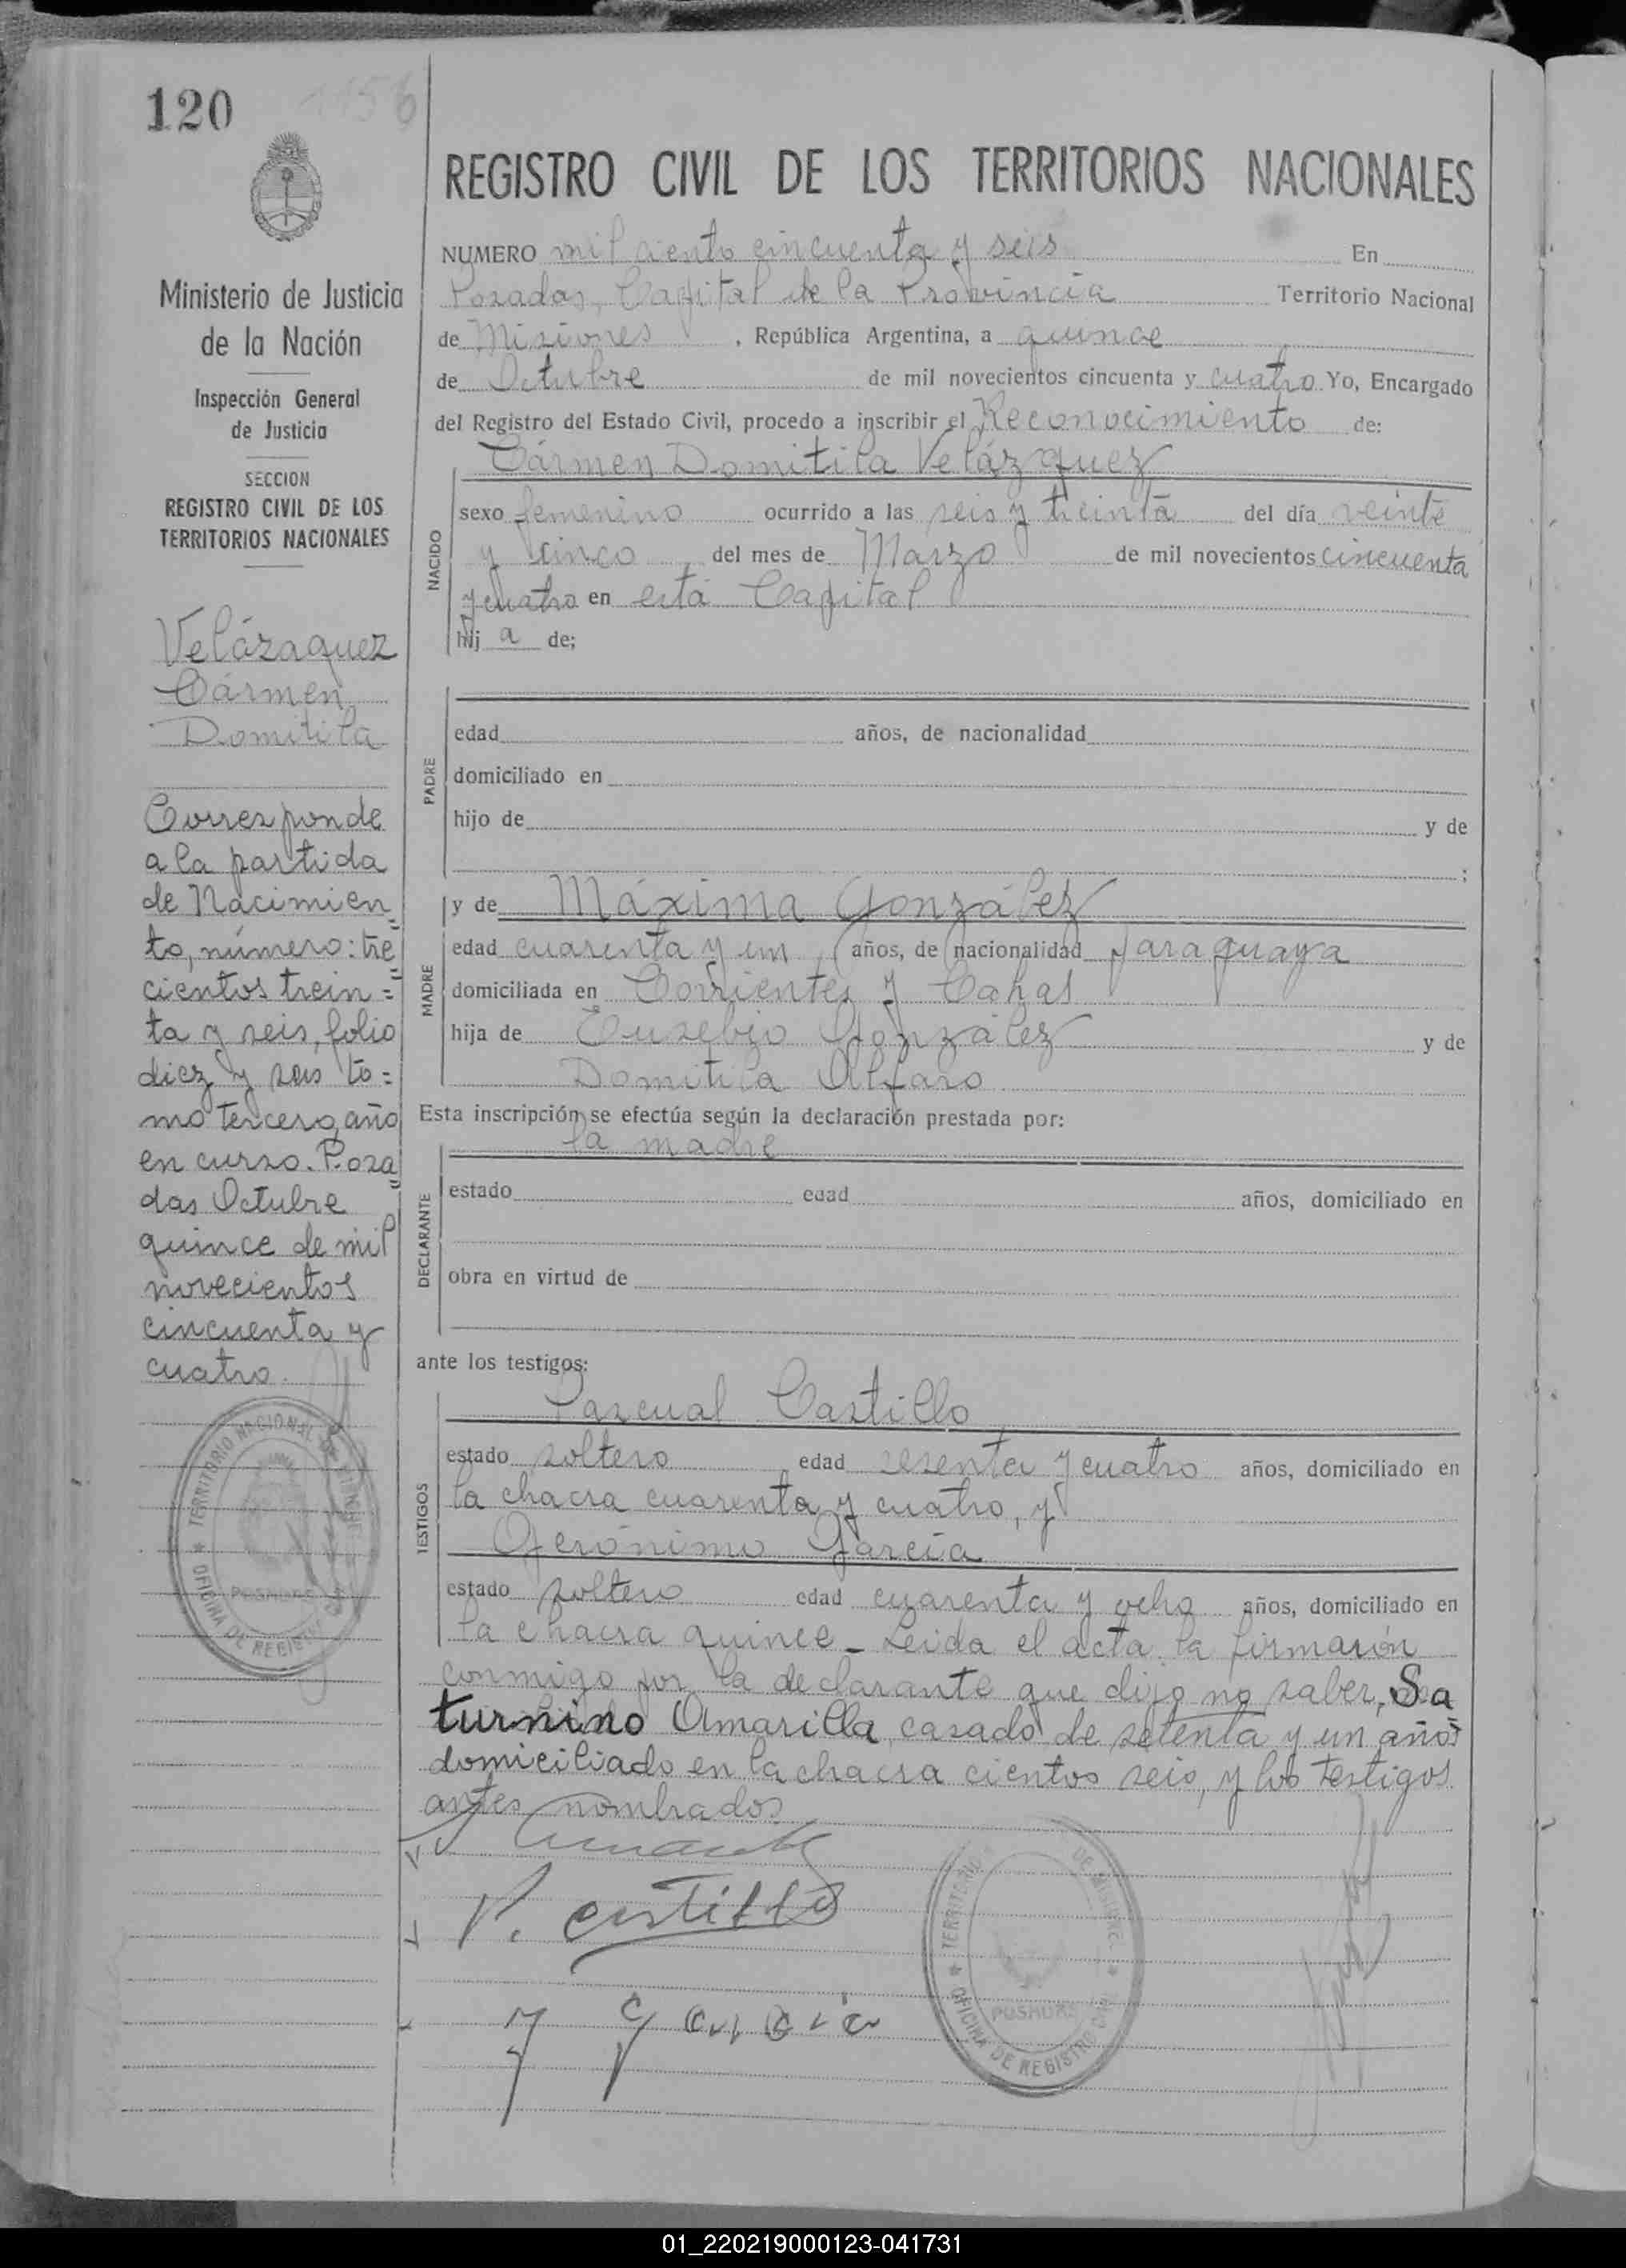 120
1156
Ministerio de Justicia
de la Nación
Inspección General
de Justicia
SECCION
REGISTRO CIVIL DE LOS
TERRITORIOS NACIONALES
Velázaquez
Cármen
Domitila
Corresponde
a la partida
de Nacimien=
to, número: tre=
cientos trein=
ta y seis, folio
diez y seis to=
mo tercero, año
en curso. Posa=
das Octubre
quince de mil
novecientos
cincuenta y
cuatro.
TERRITORIO NACIONAL DE MISIONES
POSADAS
OFICINA DE REGISTRO CIVIL
REGISTRO CIVIL DE LOS TERRITORIOS NACIONALES
NUMERO mil ciento cincuenta y seis En
Posadas, Capital de la Provincia Territorio Nacional
de Misiones , República Argentina, a quince
de Octubre de mil novecientos cincuenta y cuatro Yo, Encargado
del Registro del Estado Civil, procedo a inscribir el Reconocimiento de:
Cármen Domitila Velázquez
NACIDO
sexo femenino ocurrido a las seis y treinta del día veinte
y cinco del mes de Marzo de mil novecientos cincuenta
y cuatro en esta Capital
hij a de;
PADRE
edad años, de nacionalidad
domiciliado en
hijo de y de
;
y de Máxima González
MADRE
edad cuarenta y un , años, de nacionalidad paraguaya
domiciliada en Corrientes y Cazas
hija de Eusebio González y de
Domitila Alfaro
Esta inscripción se efectúa según la declaración prestada por:
la madre
DECLARANTE
estado edad años, domiciliado en
obra en virtud de
ante los testigos:
Pascual Castillo
TESTIGOS
estado soltero edad sesenta y cuatro años, domiciliado en
la chacra cuarenta y cuatro, y
Gerónimo García
estado soltero edad cuarenta y ocho años, domiciliado en
la chacra quince_ Leida el acta la firmarón
conmigo por la declarante que dijo no saber, Sa
turnino Amarilla, casado de setenta y un años
domiciliado en la chacra cientos seis, y los testigos
antes nombrados
P. castillo
J Garcia
TERRITORIO DE MISIONES
POSADAS
OFICINA DE REGISTRO CIVIL
01_220219000123-041731